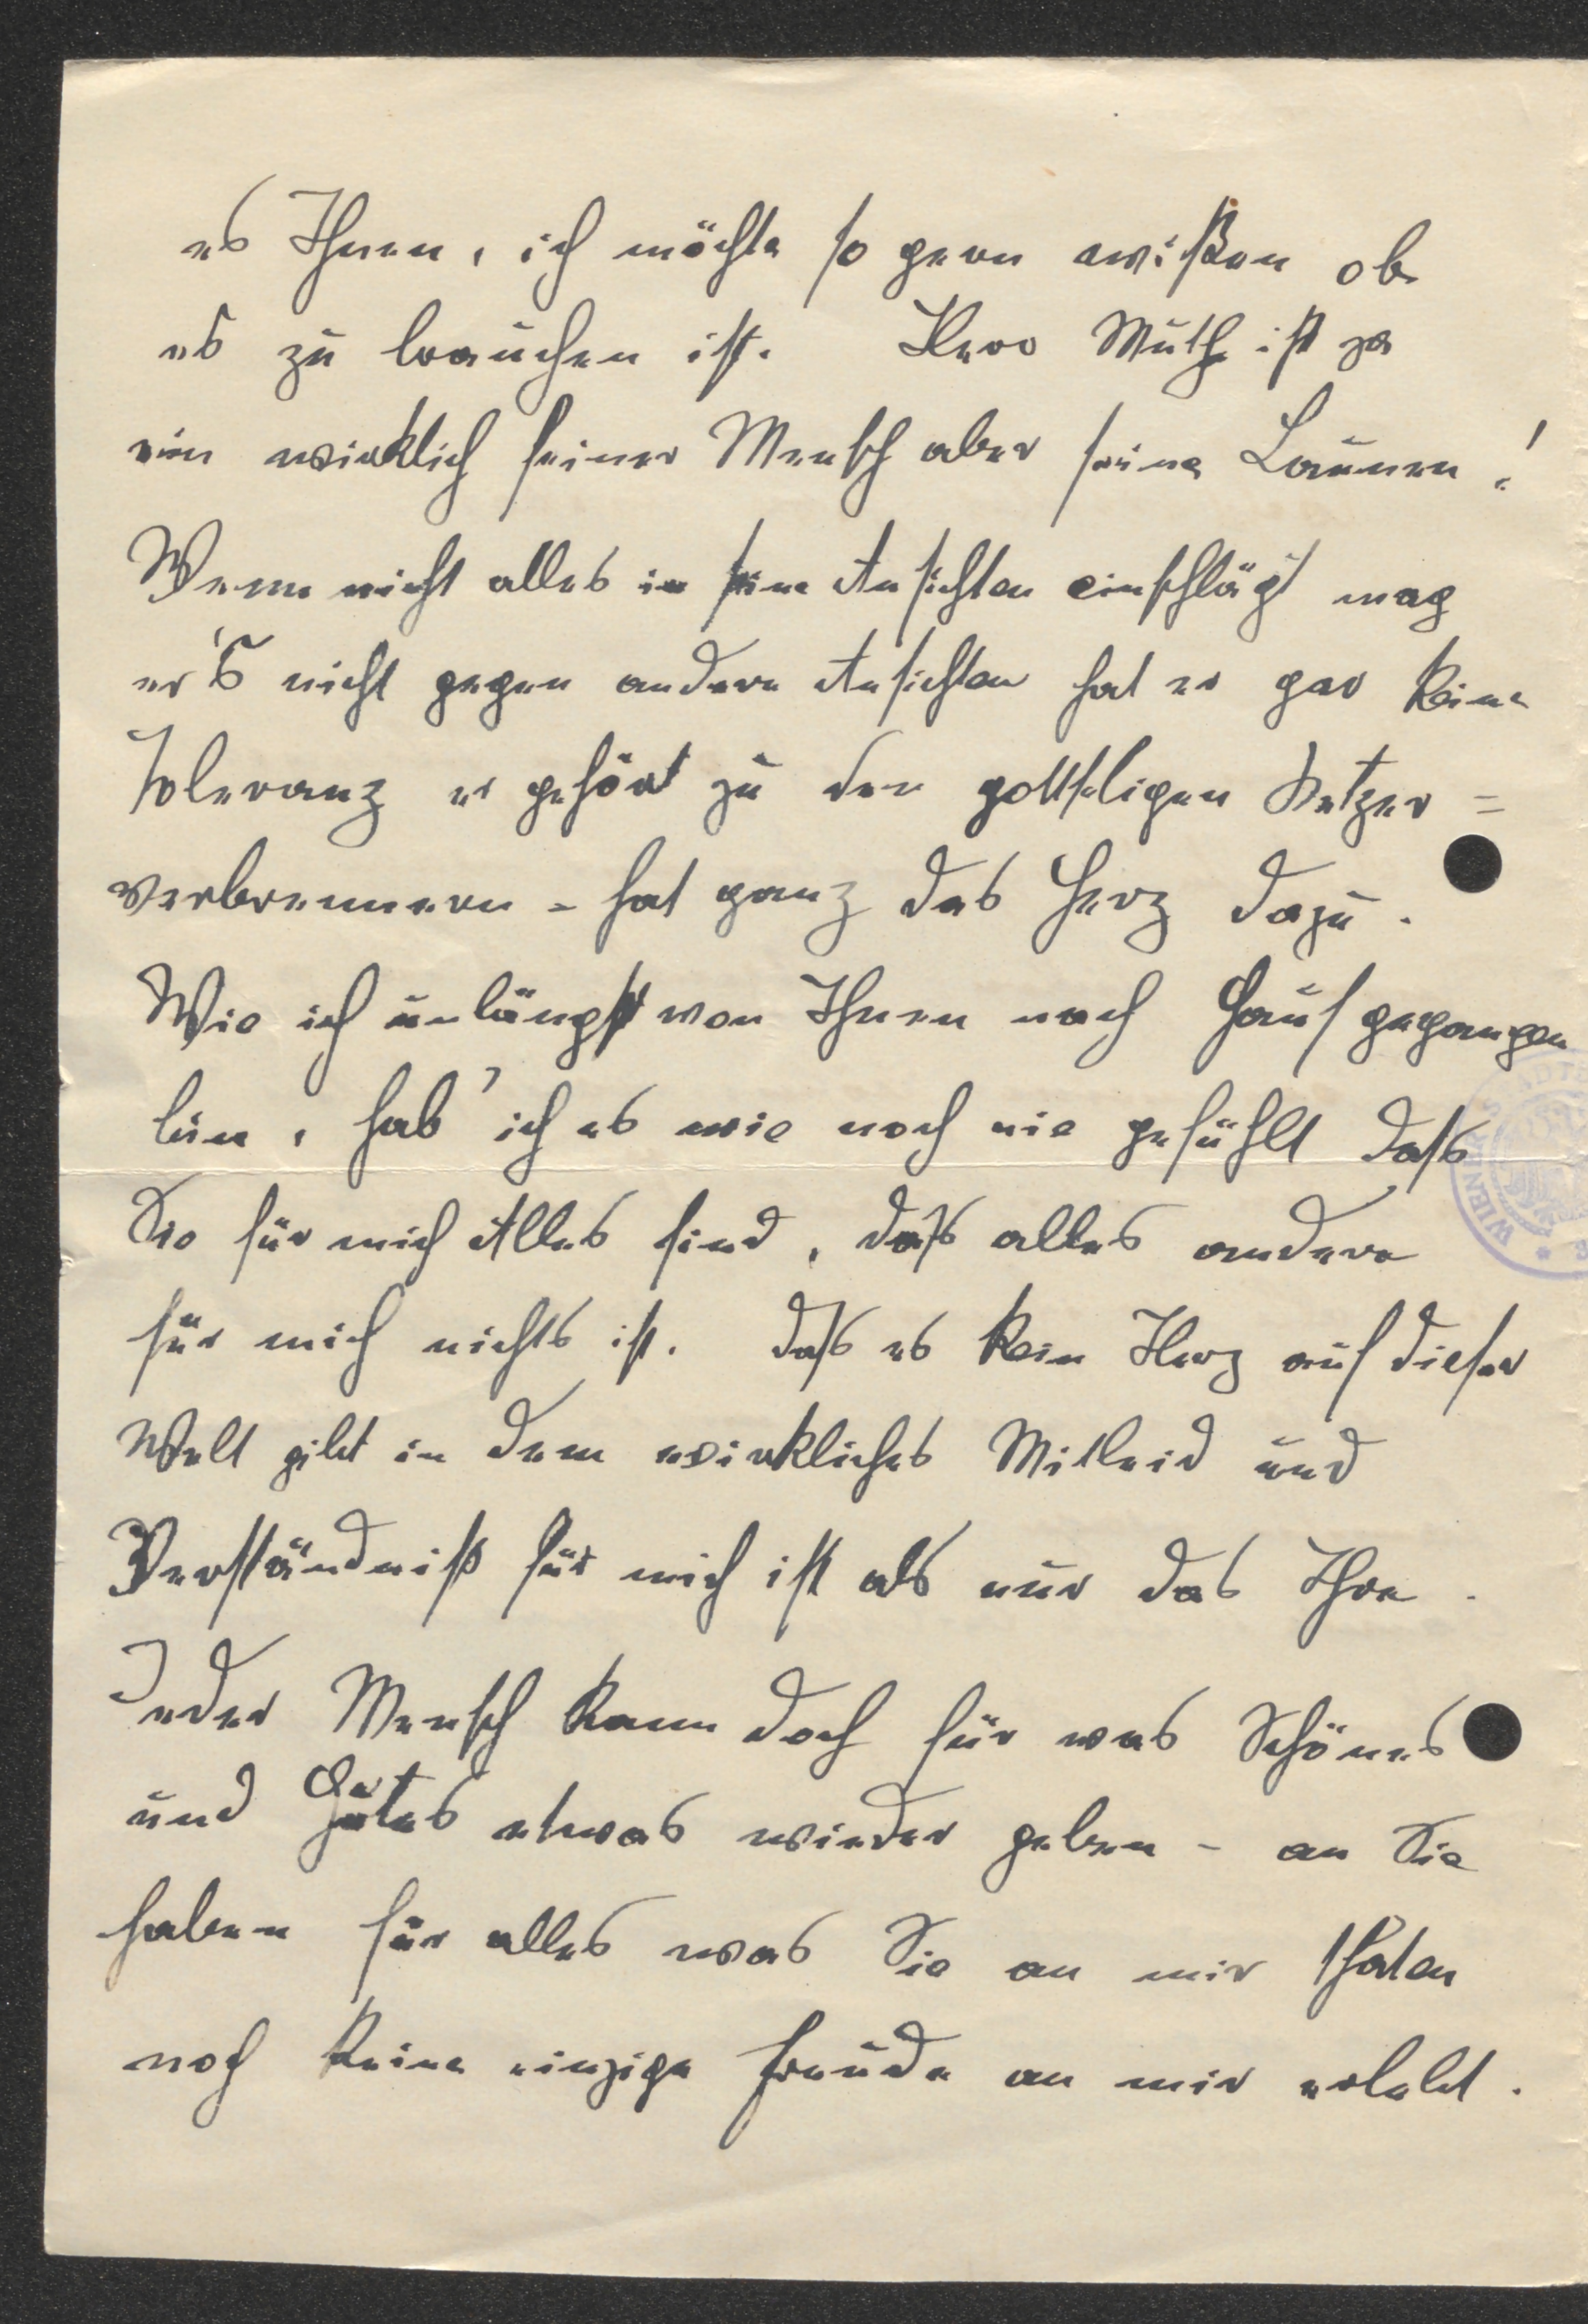 es Ihnen, ich möchte so gern wißen ob
es zu brauchen ist. Herr Muth ist ja
ein wirklich feiner Mensch aber seine Launen!
Wenn nicht alles in seine Ansichten einschlägt mag
er's nicht gegen andere Ansichten hat er gar keine
Toleranz er gehört zu den gottseligen Ketzer=
verbrennern - hat ganz das Herz dazu.
Wie ich unlängst von Ihnen nach Haus gegangen
bin, hab' ich es wie noch nie gefühlt daß
Sie für mich Alles sind, daß alles andere
für mich nichts ist. daß es kein Herz auf dieser
Welt gibt in dem wirkliches Mitleid und
Verständniß für mich ist als nur das Ihre.
Jeder Mensch kann doch für was Schönes
und Gutes etwas wieder geben - an Sie
haben für alles was Sie an mir thaten
noch keine einzige Freude an mir erlebt.
WIEN